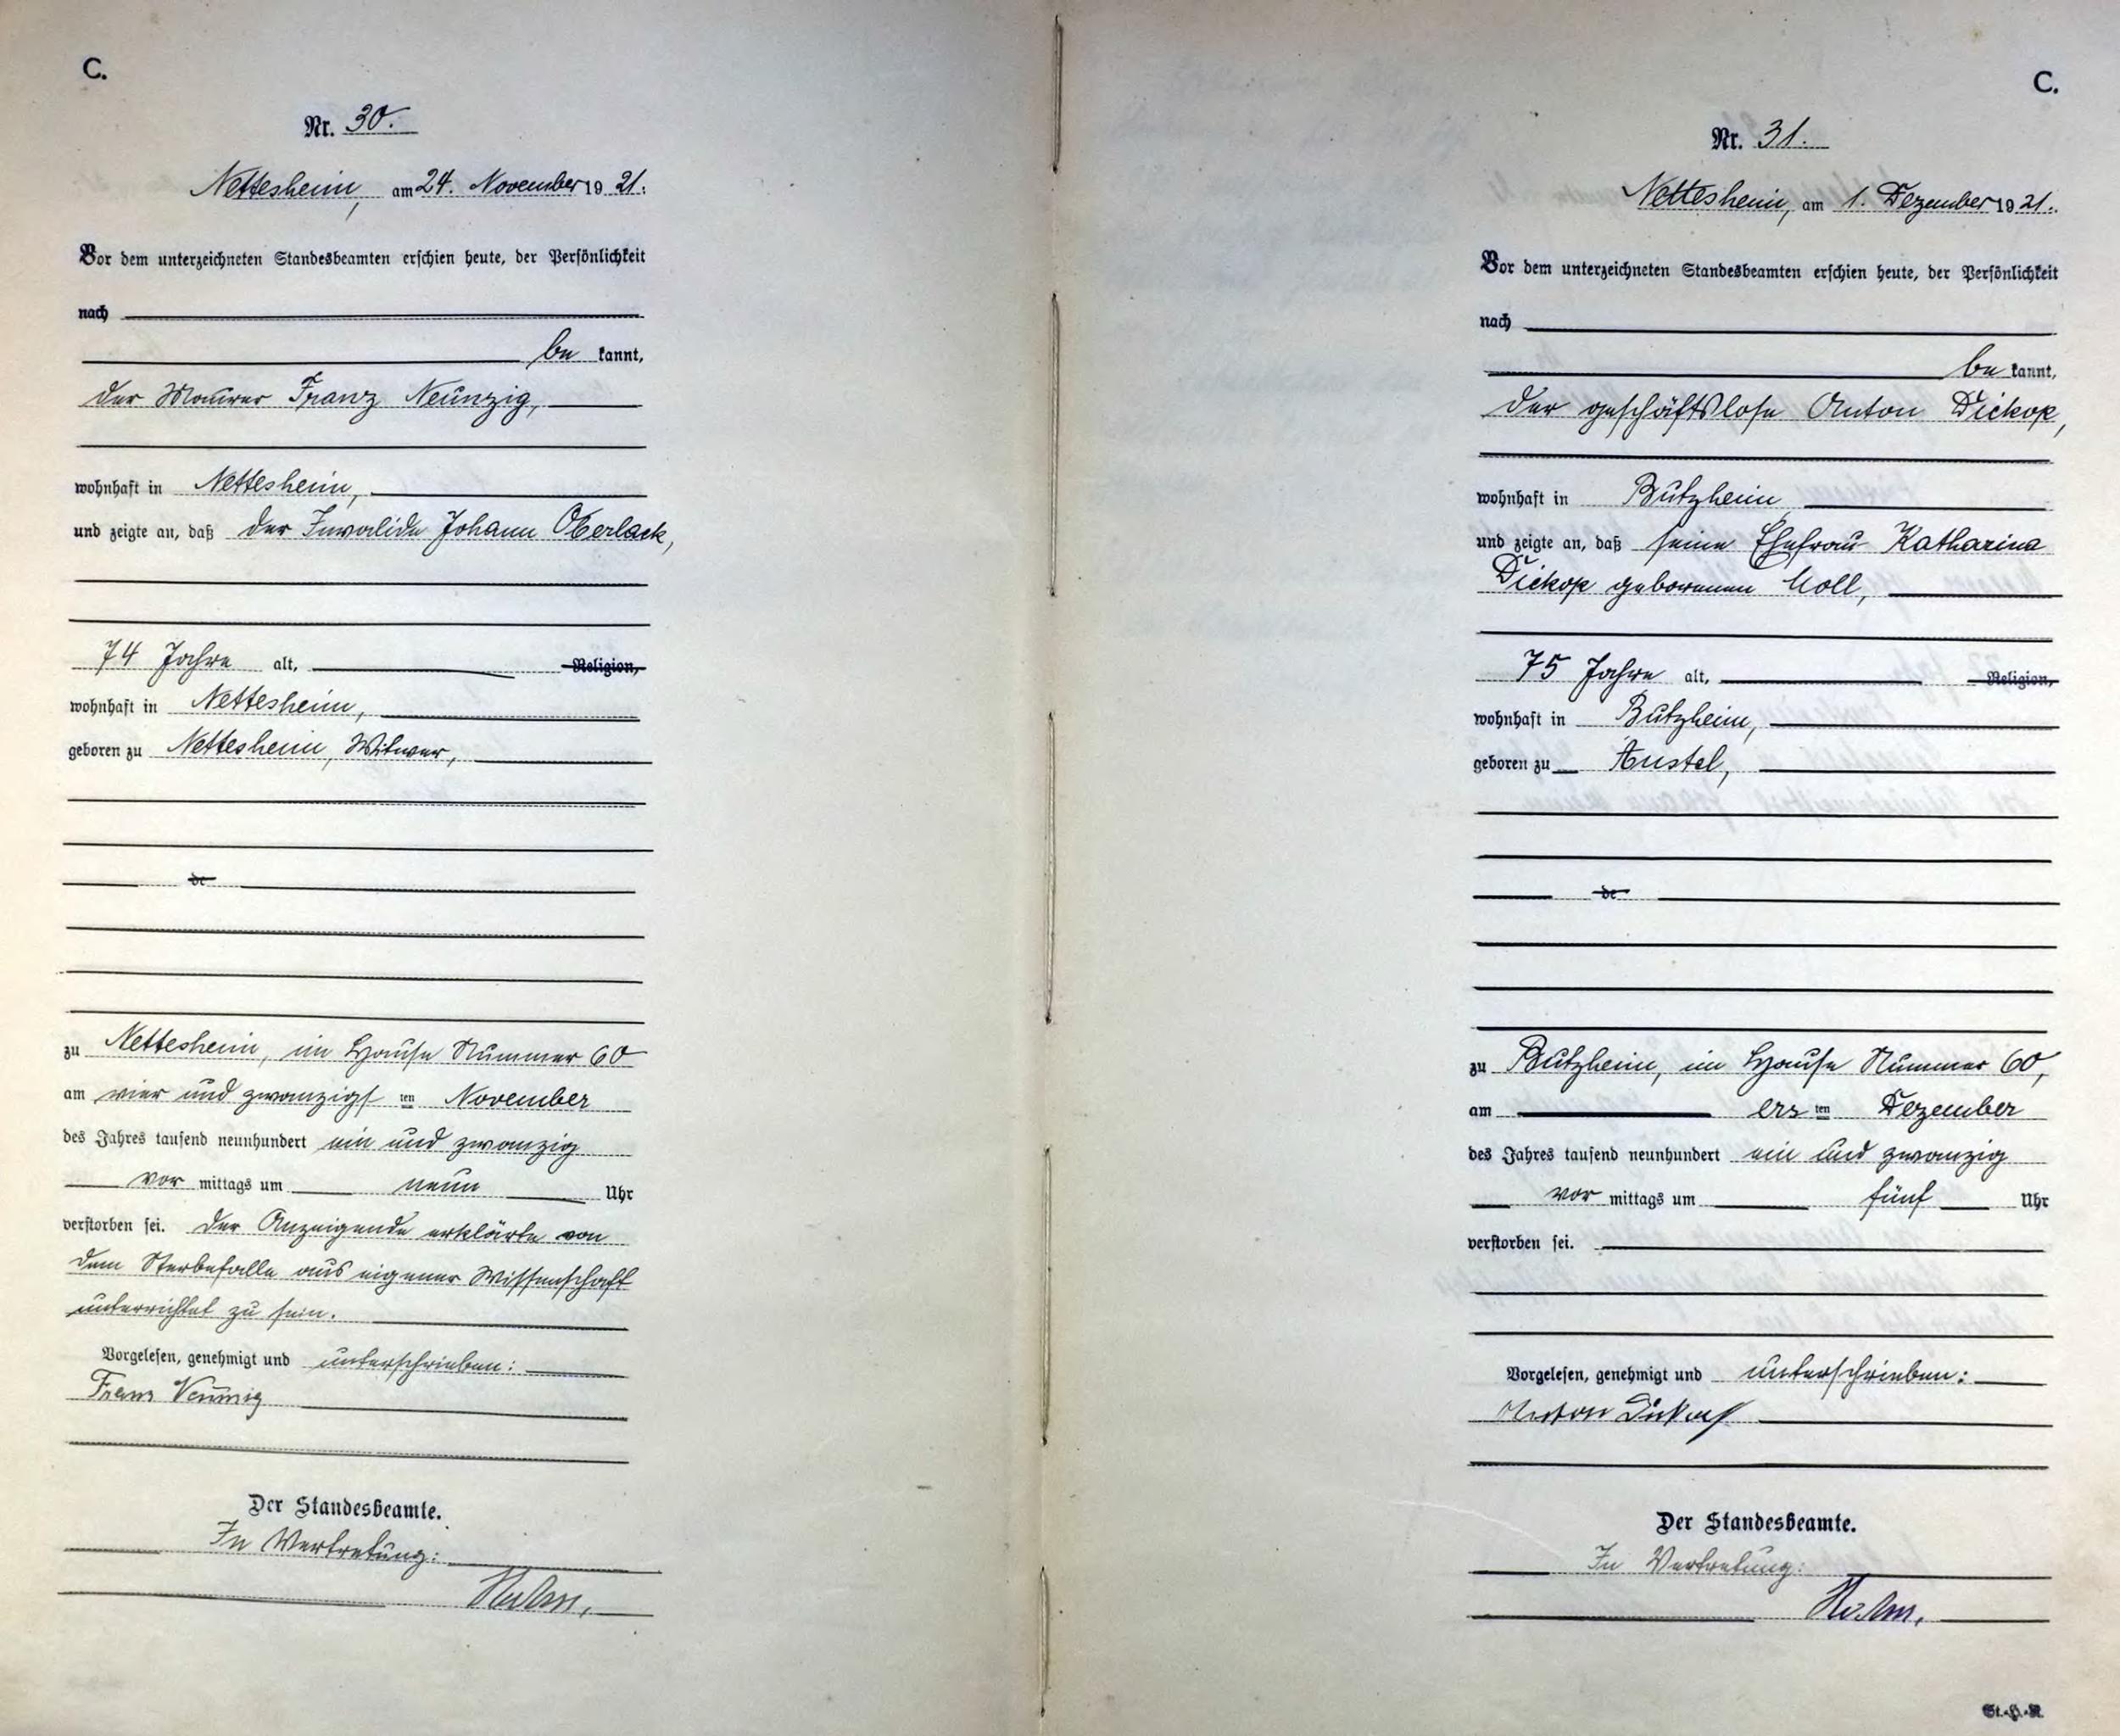 C.
Nr. 30.
Nettesheim, am 24. November 19 21.
Vor dem unterzeichneten Standesbeamten erschien heute, der Persönlichkeit
nach
be kannt,
der Maurer Franz Neunzig,
wohnhaft in Nettesheim,
und zeigte an, daß der Invalide Johann Oberlack,
74 Jahre alt, Religion,
wohnhaft in Nettesheim,
geboren zu Nettesheim, Witwer,
de
zu Nettesheim, im Hause Nummer 60
am vier und zwanzigs ten November
des Jahres tausend neunhundert ein und zwanzig
vor mittags um neun Uhr
verstorben sei. Der Anzeigende erklärte von
dem Sterbefalle aus eigener Wissenschaft
unterrichtet zu sein.
Vorgelesen, genehmigt und unterschrieben:
Franz Neunzig
Der Standesbeamte.
In Vertretung:
C.
Nr. 31.
Nettesheim, am 1. Dezember 19 21.
Vor dem unterzeichneten Standesbeamten erschien heute, der Persönlichkeit
nach
be kannt,
der geschäftslose Anton Dickop,
wohnhaft in Butzheim
und zeigte an, daß seine Ehefrau Katharina
Dickop geborenen Moll,
75 Jahre alt, Religion,
wohnhaft in Butzheim,
geboren zu Anstel,
de
zu Butzheim, im Hause Nummer 60,
am ers ten Dezember
des Jahres tausend neunhundert ein und zwanzig
vor mittags um fünf Uhr
verstorben sei.
Vorgelesen, genehmigt und unterschrieben:
Anton Dickop
Der Standesbeamte.
In Vertretung: